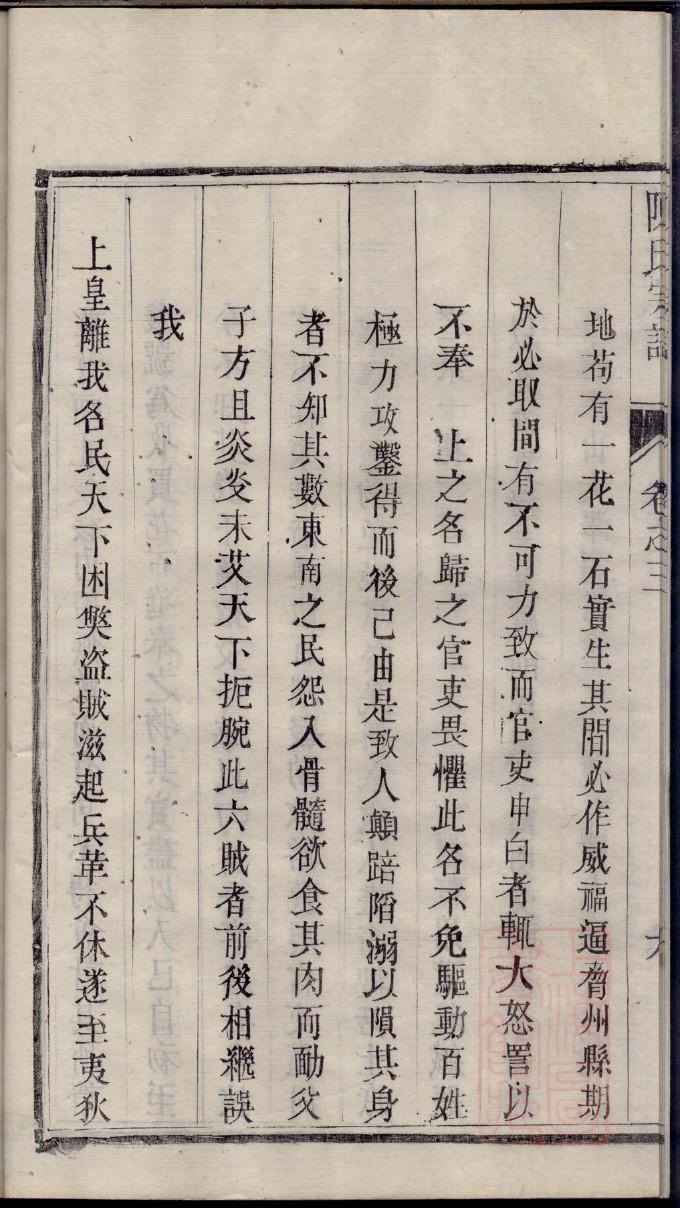 陳氏宗譜
卷之三
六
地苟有一花一石實生其間必作威福逼脅州縣期
於必取間有不可力致而官吏申白者輒大怒詈以
不奉 上之名歸之官吏畏懼此各不免驅動百姓
極力攻鑿得而後已由是致人顛踣陷溺以隕其身
者不知其數東南之民怨入骨髓欲食其肉而勔父
子方且炎炎未艾天下扼腕此六賊者前後相繼誤
我
上皇離我各民天下困獘盗賊滋起兵革不休遂至夷狄